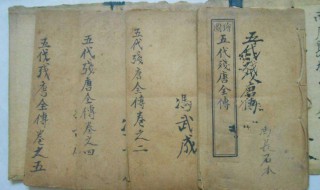 五代殘唐全傳
繪圖
五代殘唐全傳
馮武成
五代殘唐全傳卷之二
五代殘唐全傳卷之四
五代殘唐全傳卷之五